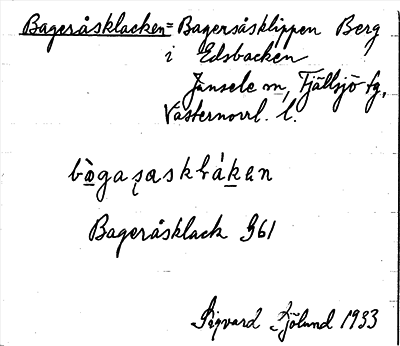 Bageråsklacken = Bageråsklippen Berg
i Edsbacken
Junsele m, Fjällsjö tg,
Västernorrl. l.
bògaʂasklákɛn
Bageråsklack G61
Sigvard Sjölund 1933